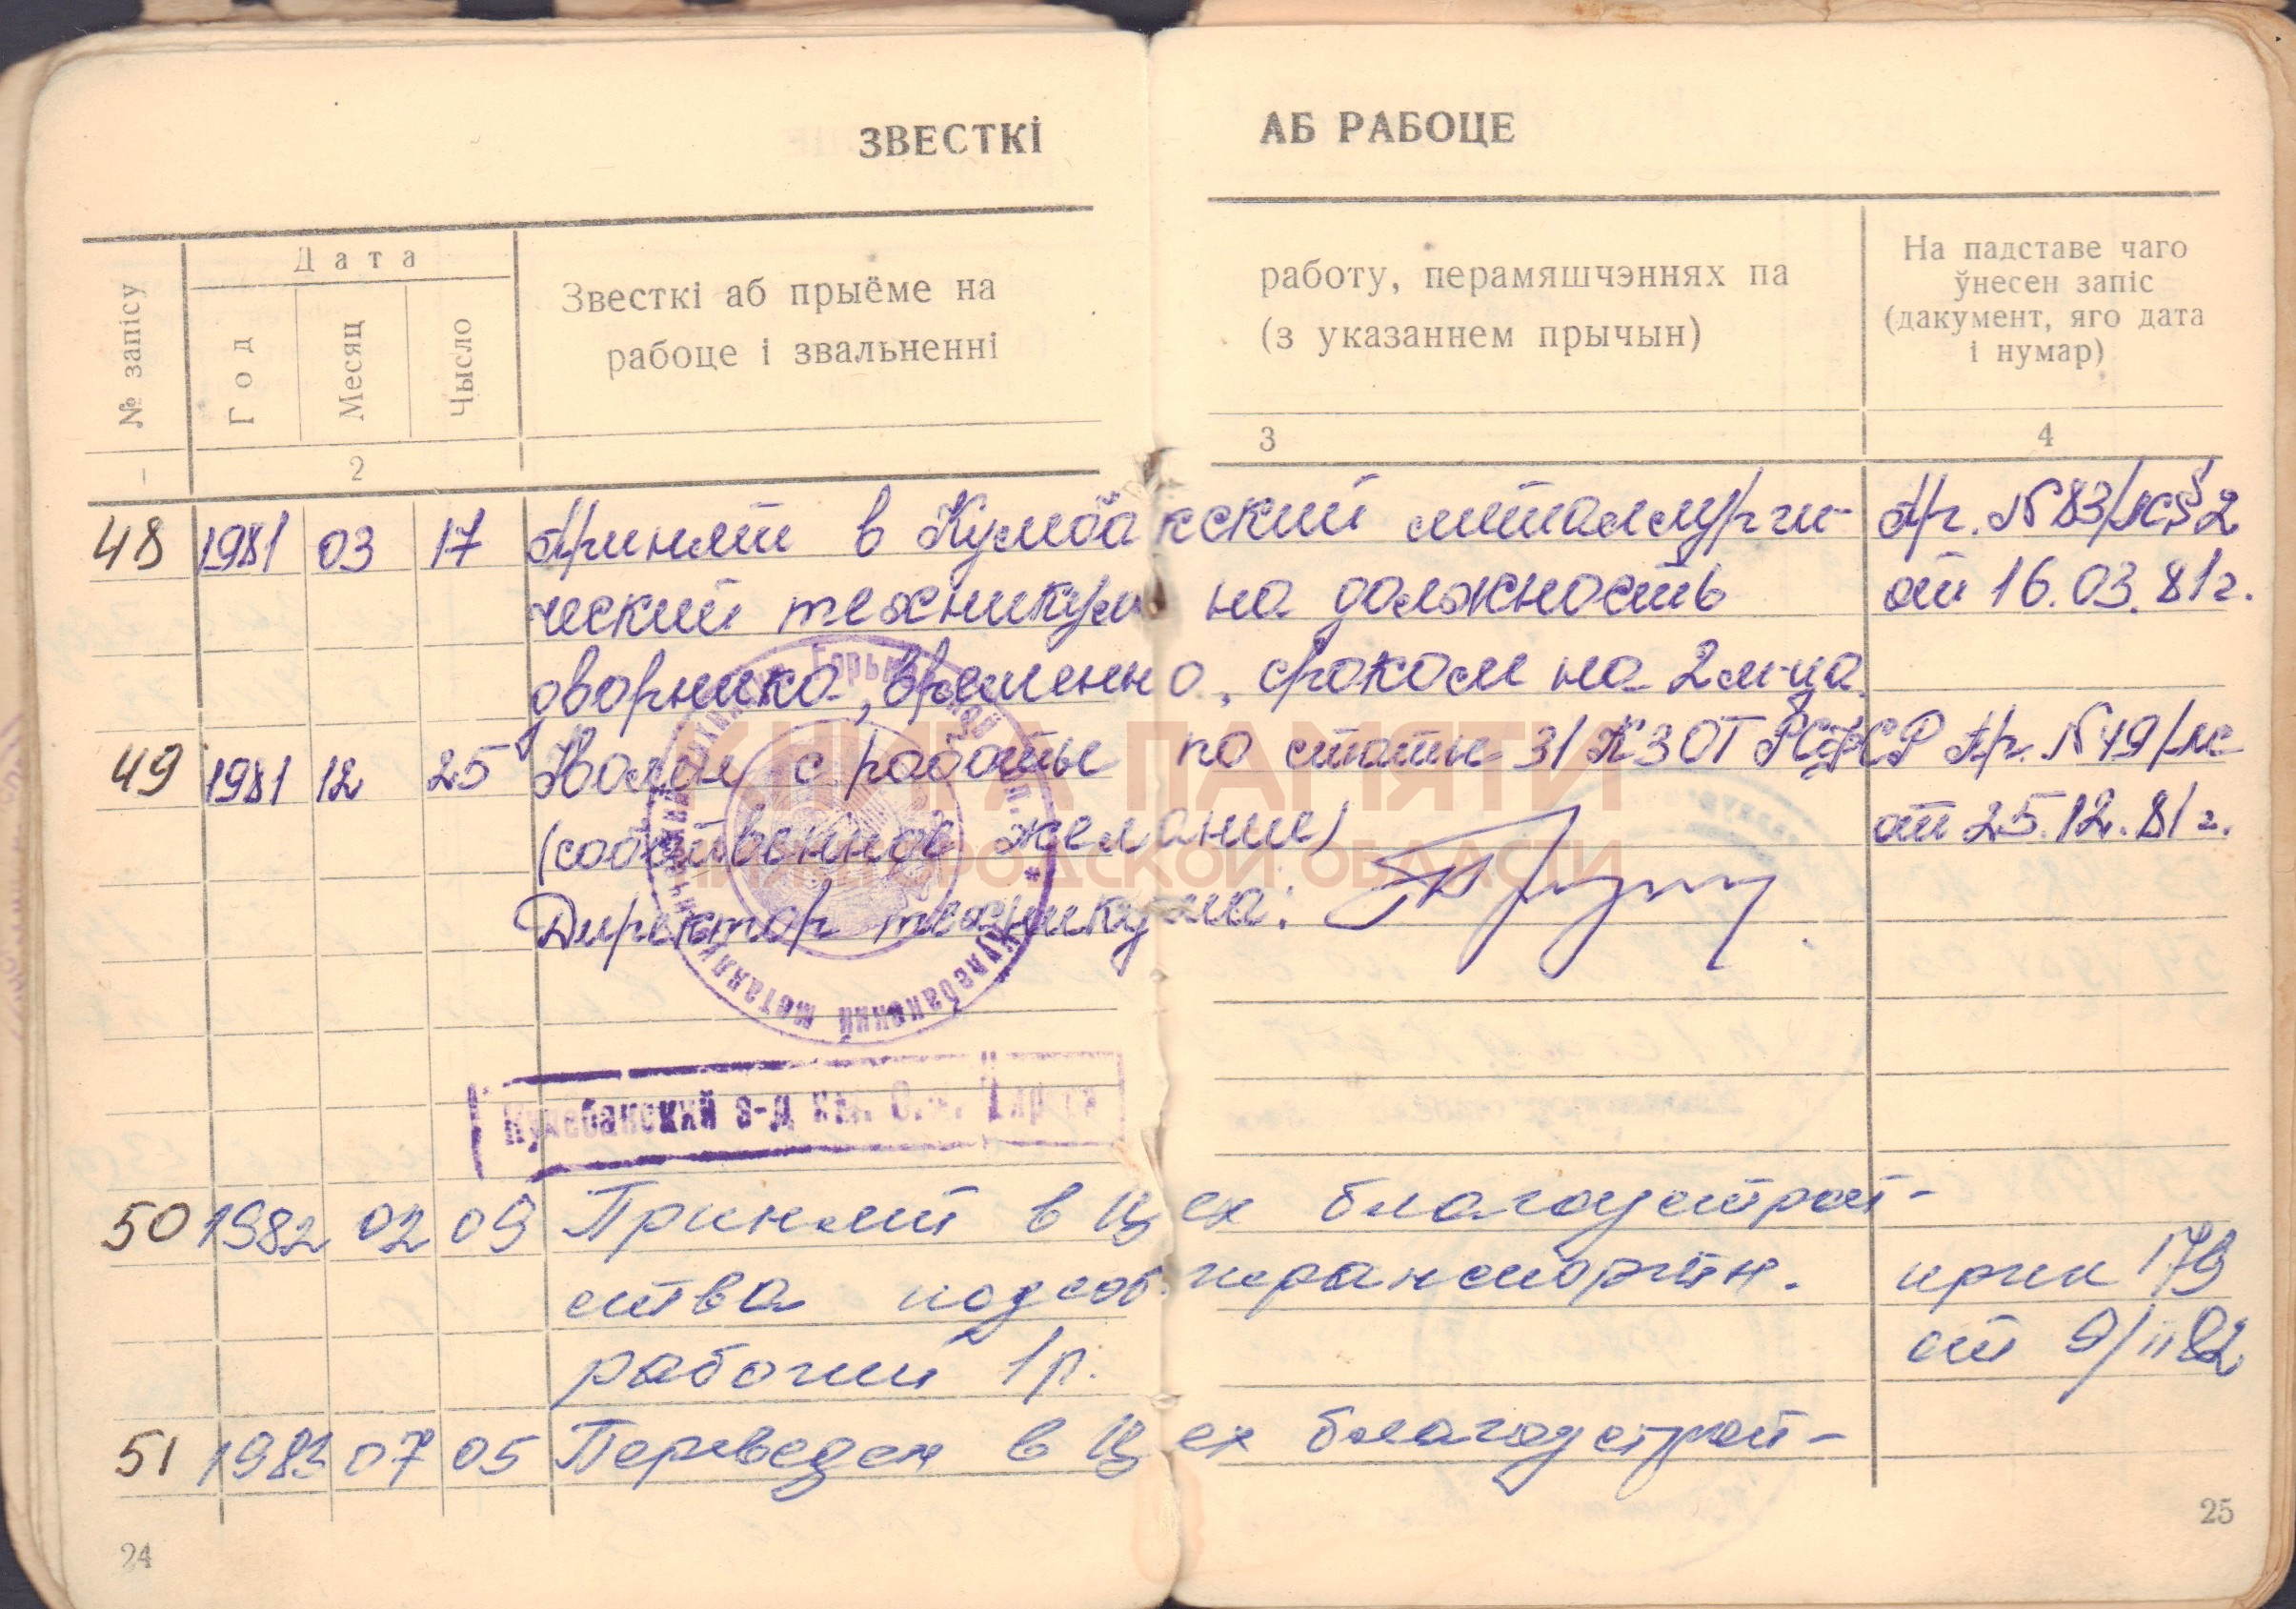 ЗВЕСТКІ АБ РАБОЦЕ
№ запісу
Дата
Год
Месяц
Чысло
Звесткі аб прыёме на работу, перамяшчэннях па
рабоце і звальненні (з указаннем прычын)
На падставе чаго
ўнесен запіс
(дакумент, яго дата
і нумар)
2 3 4
48 1981 03 17 Принят в Кулебакский металлурги- Пр. №83/лс§2
ческий техникум на должность от 16.03.81г.
дворника, временно, сроком на 2 м-ца.
49 1981 12 25 Уволен с работы по статьи 31 КЗОТ РСФСР Пр. №49/лс
(собственное желание) от 25.12.81г.
Директор техникума:
Кулебакский металлургический
КНИГА ПАМЯТИ
НИЖЕГОРОДСКОЙ ОБЛАСТИ
Кулебакский з-д им. С.М. Кирова
50 1982 02 09 Принят в цех благоустрой-
ства подсоб. транспортн. прик 179
рабочий 1р. от 9/II 82
51 1983 07 05 Переведен в цех благоустрой-
24
25